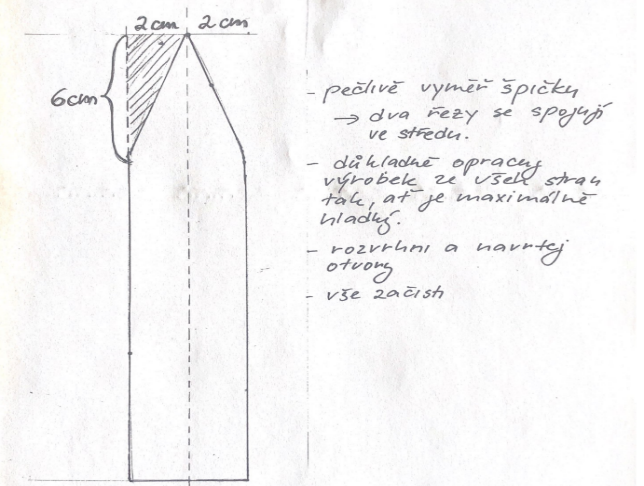 2 cm 2 cm
6cm
- pečlivě vyměř špičku
→ dva řezy se spojují
ve středu.
- důkladně opracuj
výrobek ze všech stran
tak, ať je maximálně
hladký.
- rozvrhni a navrtej
otvory
- vše začisti